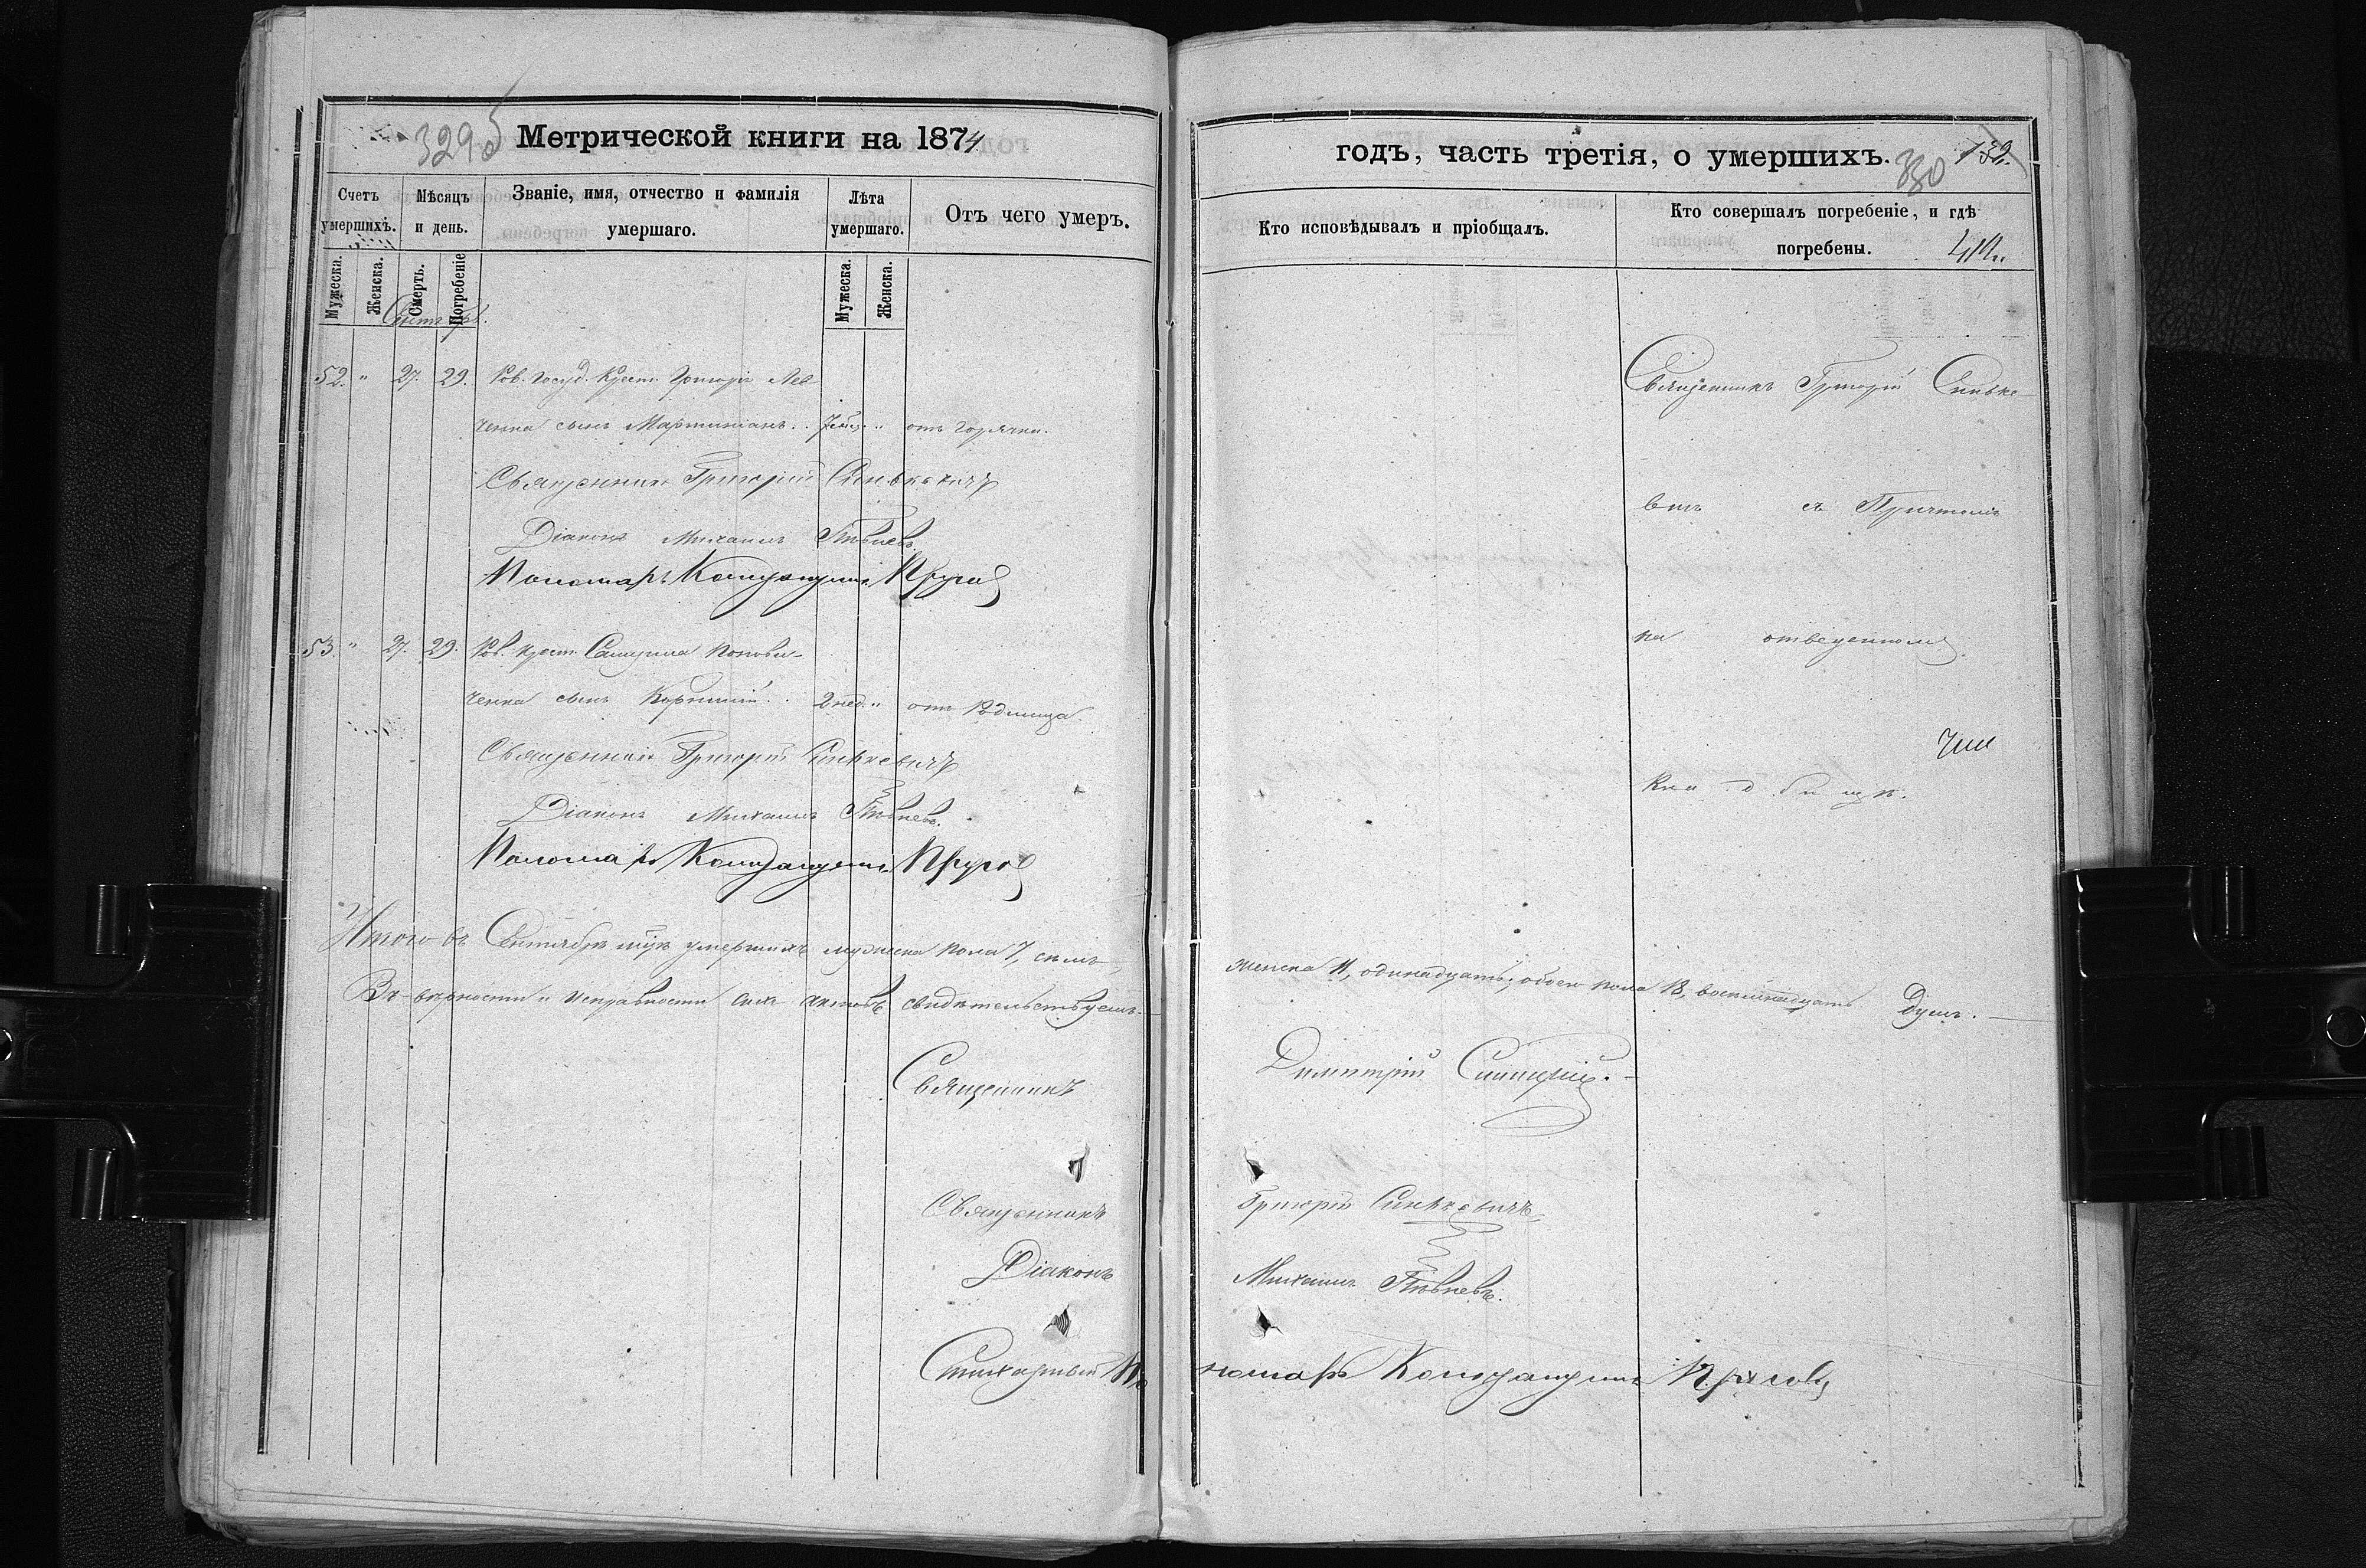 329 об
Метрической книги на 1874
Счетъ умершихъ.
Мѣсяцъ и день.
Званіе, имя, отчество и фамилія умершаго.
Лѣта умершаго.
Отъ чего умеръ.
Мужеска.
Женска.
Смерть.
Погребеніе
Мужеска.
Женска.
52. " 27. 29. Госуд. Крест. Григорія Лев
ченка сынъ Мартиніанъ. " отъ горячки.
Священникъ Григорій Синькевичъ
Діаконъ Михаилъ Пѣвневъ
Пономарь
53. " 27. 29. Крест. Попови-
ченка сынъ Корнилій. 2 нед. " отъ родимца
Священникъ Григорій Синькевичъ
Діаконъ Михаилъ Пѣвневъ.
Пономарь
Итого въ Сентябрѣ мцѣ умершихъ мужеска пола 7, семь,
Въ вѣрности и исправности сихъ актовъ свидѣтельствуемъ.
Священникъ
Священникъ
Діаконъ
Стихарный По
годъ, часть третія, о умершихъ.
330
132.
Кто исповѣдывалъ и пріобщалъ.
Кто совершалъ погребеніе, и гдѣ погребены.
Священникъ Григорій Синьке
вичъ съ Причтомъ
на отведенномъ
кладбищѣ.
женска 11, одинадцать; обоего пола 18, восемнадцать Душъ.
Димитрій
Григорій Синькевичъ
Михаилъ Пѣвневъ.
номарь